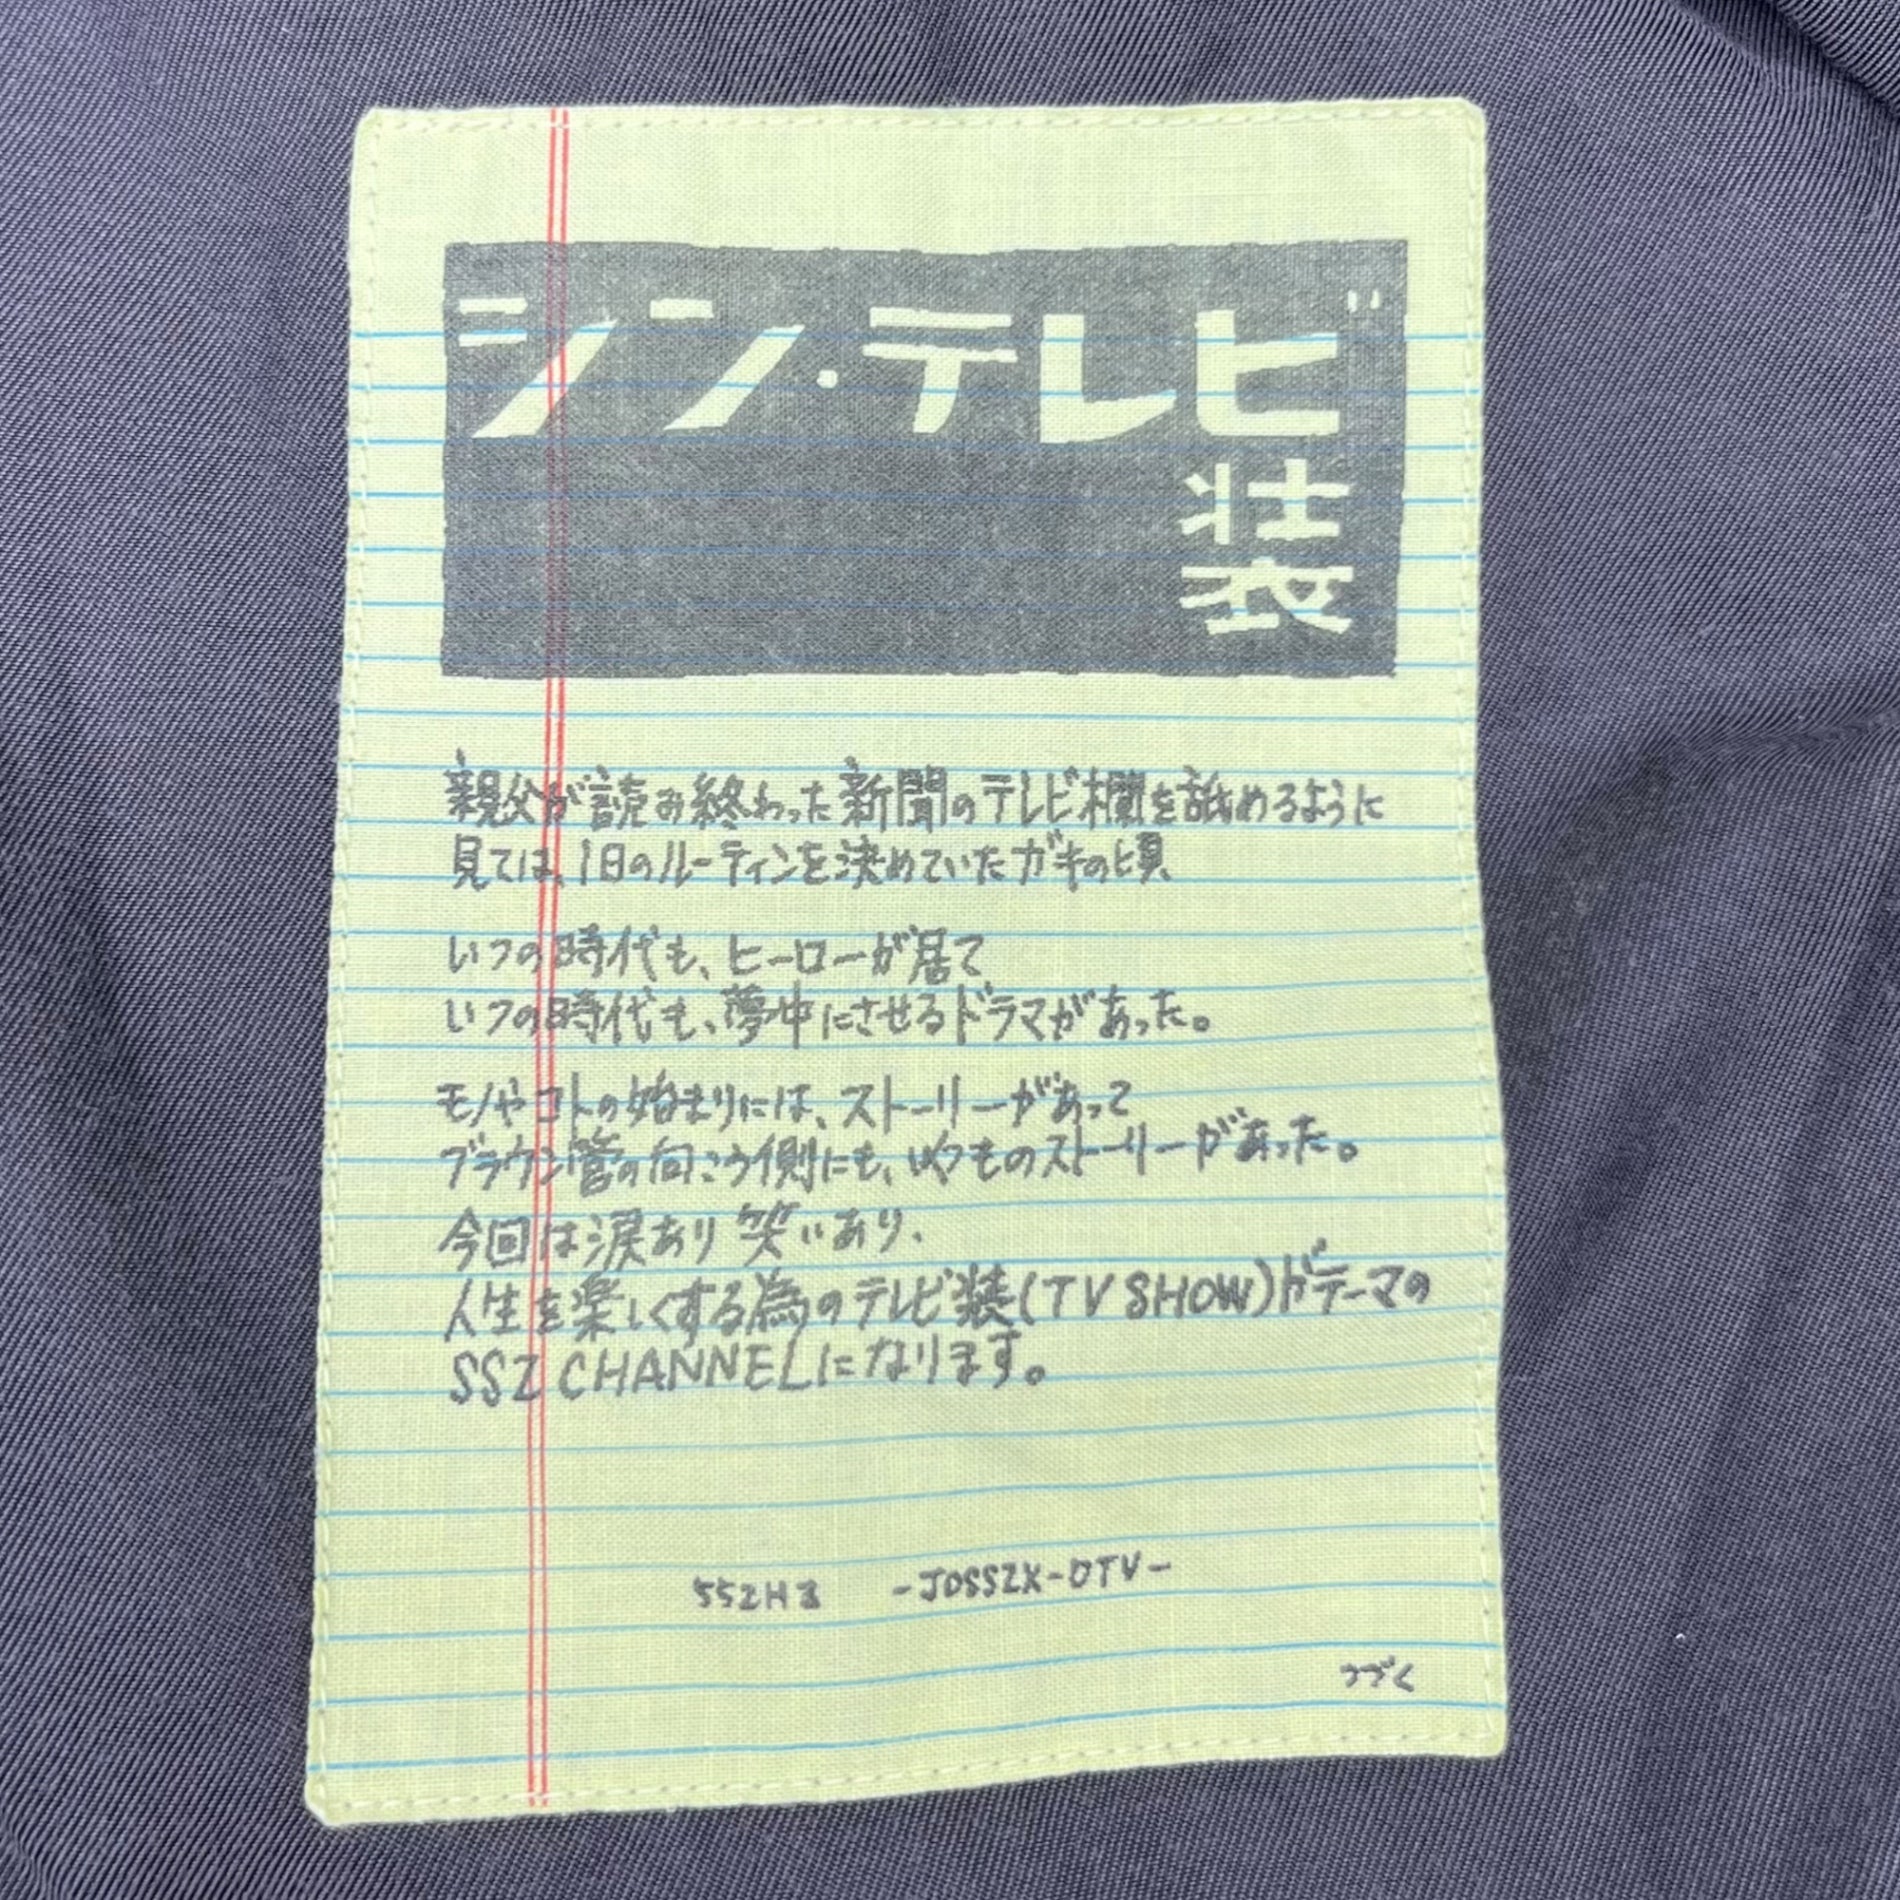 シン・テレビ
装
親父が読み終わった新聞のテレビ欄を舐めるように
見ては、1日のルーティンを決めていたガキの頃、
いつの時代も、ヒーローが居て
いつの時代も、夢中にさせるドラマがあった。
モノやコトの始まりには、ストーリーがあって
ブラウン管の向こう側にも、いくつものストーリーがあった。
今回は涙あり笑いあり、
人生を楽しくする為のテレビ装(TV SHOW)がテーマの
SSZ CHANNELになります。
SSZHz -JOSSZX-DTV-
つづく